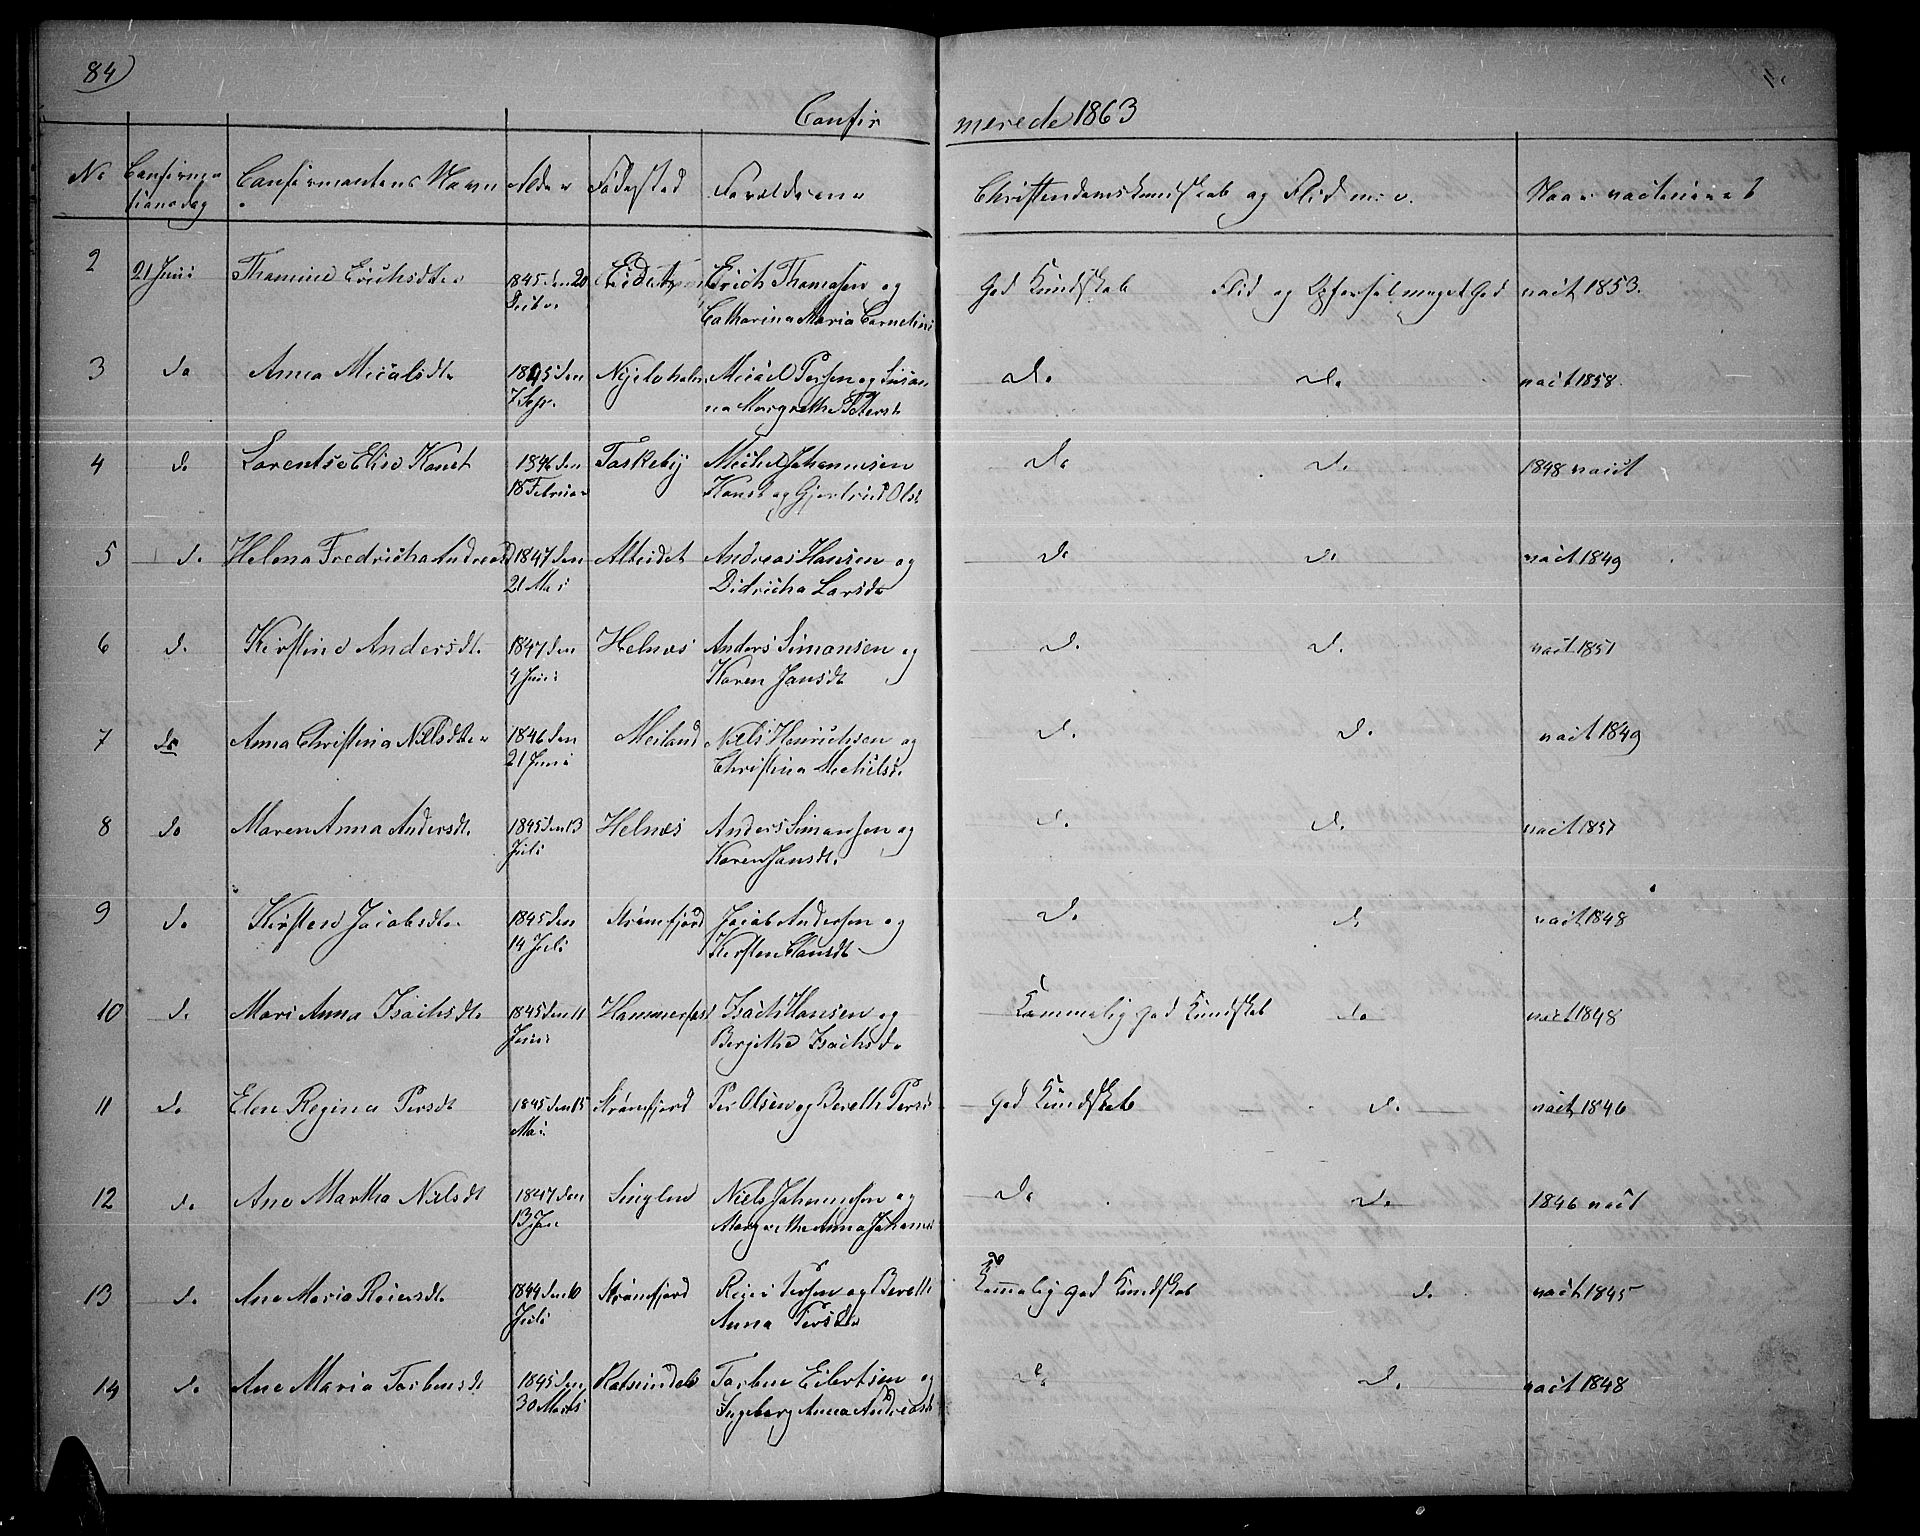 84)
Confir merede 1863
No Confirma Confirmantens Navn Alder Fødested Forældrene Christendomskundskab og Flid m: v. Naar vactineret
tionsdag
2 21 Juni Thomine Erichsdtr 1845 den 20 Erich Thomasen og God Kundskab Flid og Opførsel meget God vact 1853.
Catharina Maria Corneliusd
3 do Anna Micalsdtr 1845 den Micael Persen og Susan do do vact 1858.
7 Sep. na Margrethe Petersd
4 do Lorentse Elise Hansd 1846 den Taskeby Michel Johannesen do do 1848 vact
18 Februar Hansd og Gjertrud Olsd
5 do Helena Fredricha Andreasd 1847 den Alteidet Andreas Hansen og do do vact 1849
21 Mai Didricha Larsdr
6 do Kirstine Andersdtr 1847 den Helnes Anders Simonsen og do do vact 1851
4 Juni Karen Jansdt
7 do Anna Christina Nielsdtr 1846 den Meiland Niels Henrichsen og do do vact 1849
21 Juni Christina Michelsd
8 do Maren Anna Andersdtr 1845 den 13 Helnes Anders Simonsen og do do vact 1857
Juli Karen Jansdtr
9 do Kirsten Jacobsdtr 1845 den Strømfjord Jacob Andersen og do do vact 1848
14 Juli Kirsten Clausdtr
10 do Mari Anna Isachsdtr 1845 den 11 Hammerfest Isach Hansen og Temmelig god Kundskab do vact 1848
Juni Bergithe Isachsdr
11 do Elen Regina Persdt 1845 den 15 Strømfjord Per Olsen og Bereth Persd God Kundskab do vact 1846
Mai
12 do Ane Martha Nielsdt 1847 den Singlen Niels Johannesen og do do 1846 vact
13 Jan Margrethe Anna Johannesd
13 do Ane Maria Reiersdtr 1844 den 10 Strømfjord Reier Persen og Bereth Temmelig god Kundskab do vact 1845
Juli Anna Persdtr
14 do Ane Maria Torbensdt 1845 den Torben Eilertsen og do do vact 1848
30 Marts Ingeborg Anna Andreasdt